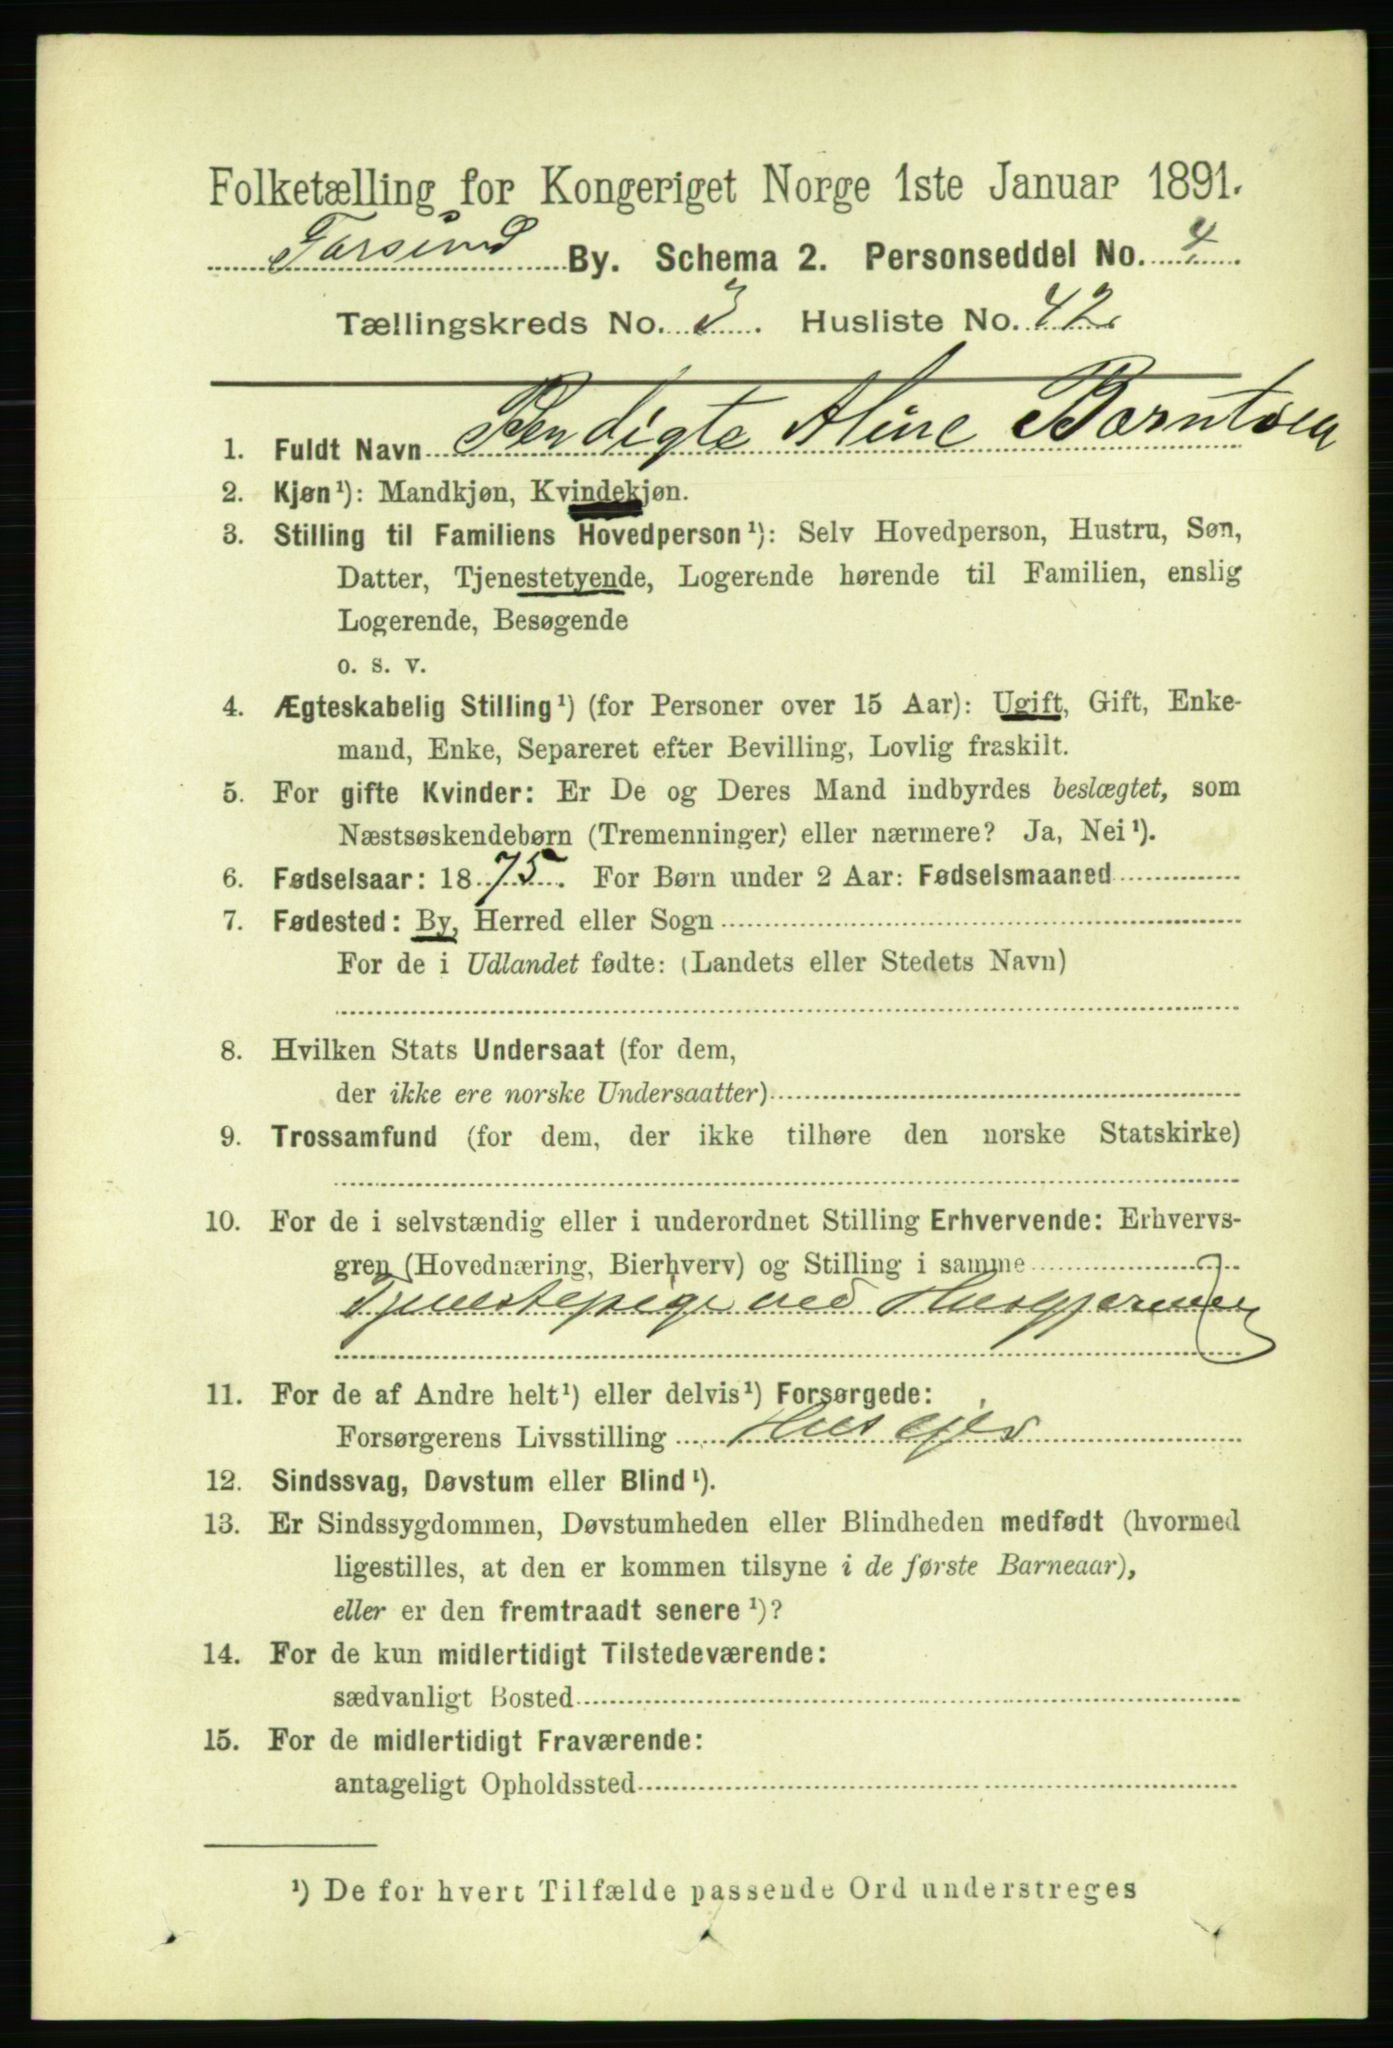 Folketælling for Kongeriget Norge 1ste Januar 1891.
Farsund By. Schema 2. Personseddel No. 4
Tællingskreds No. 3. Husliste No. 42
1. Fuldt Navn Bendigte Aline Berntsen
2. Kjøn¹): Mandkjøn, Kvindekjøn.
3. Stilling til Familiens Hovedperson¹): Selv Hovedperson, Hustru, Søn,
Datter, Tjenestetyende, Logerende hørende til Familien, enslig
Logerende, Besøgende
o. s. v.
4. Ægteskabelig Stilling¹) (for Personer over 15 Aar): Ugift, Gift, Enke-
mand, Enke, Separeret efter Bevilling, Lovlig fraskilt.
5. For gifte Kvinder: Er De og Deres Mand indbyrdes beslægtet, som
Næstsøskendebørn (Tremenninger) eller nærmere? Ja, Nei¹).
6. Fødselsaar: 1875. For Børn under 2 Aar: Fødselsmaaned
7. Fødested: By, Herred eller Sogn
For de i Udlandet fødte: (Landets eller Stedets Navn)
8. Hvilken Stats Undersaat (for dem,
der ikke ere norske Undersaatter)
9. Trossamfund (for dem, der ikke tilhøre den norske Statskirke)
10. For de i selvstændig eller i underordnet Stilling Erhvervende: Erhvervs-
gren (Hovednæring, Bierhverv) og Stilling i samme
Tjenestepige ved Husgjerning
11. For de af Andre helt¹) eller delvis¹) Forsørgede:
Forsørgerens Livsstilling Husejer
12. Sindssvag, Døvstum eller Blind¹).
13. Er Sindssygdommen, Døvstumheden eller Blindheden medfødt (hvormed
ligestilles, at den er kommen tilsyne i de første Barneaar),
eller er den fremtraadt senere¹)?
14. For de kun midlertidigt Tilstedeværende:
sædvanligt Bosted
15. For de midlertidigt Fraværende:
antageligt Opholdssted
¹) De for hvert Tilfælde passende Ord understreges